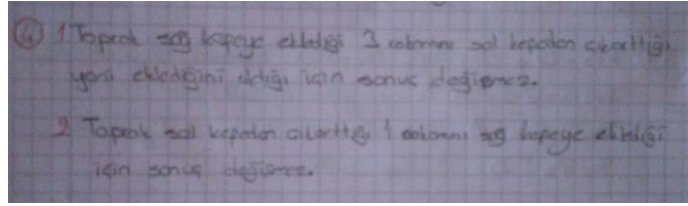 4) 1 Toprak sağ kefeye eklediği 3 sol kefeden çıkarttığı
yani eklediğini aldığı için sonuç değişmez.
2 Toprak sol kefeden çıkarttığı 1 sağ kefeye eklediği
için sonuç değişmez.